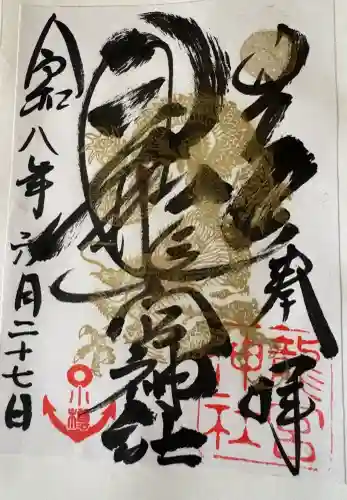 奉拝
龍宮神社
令和八年六月二十七日
龍宮
神社
小樽